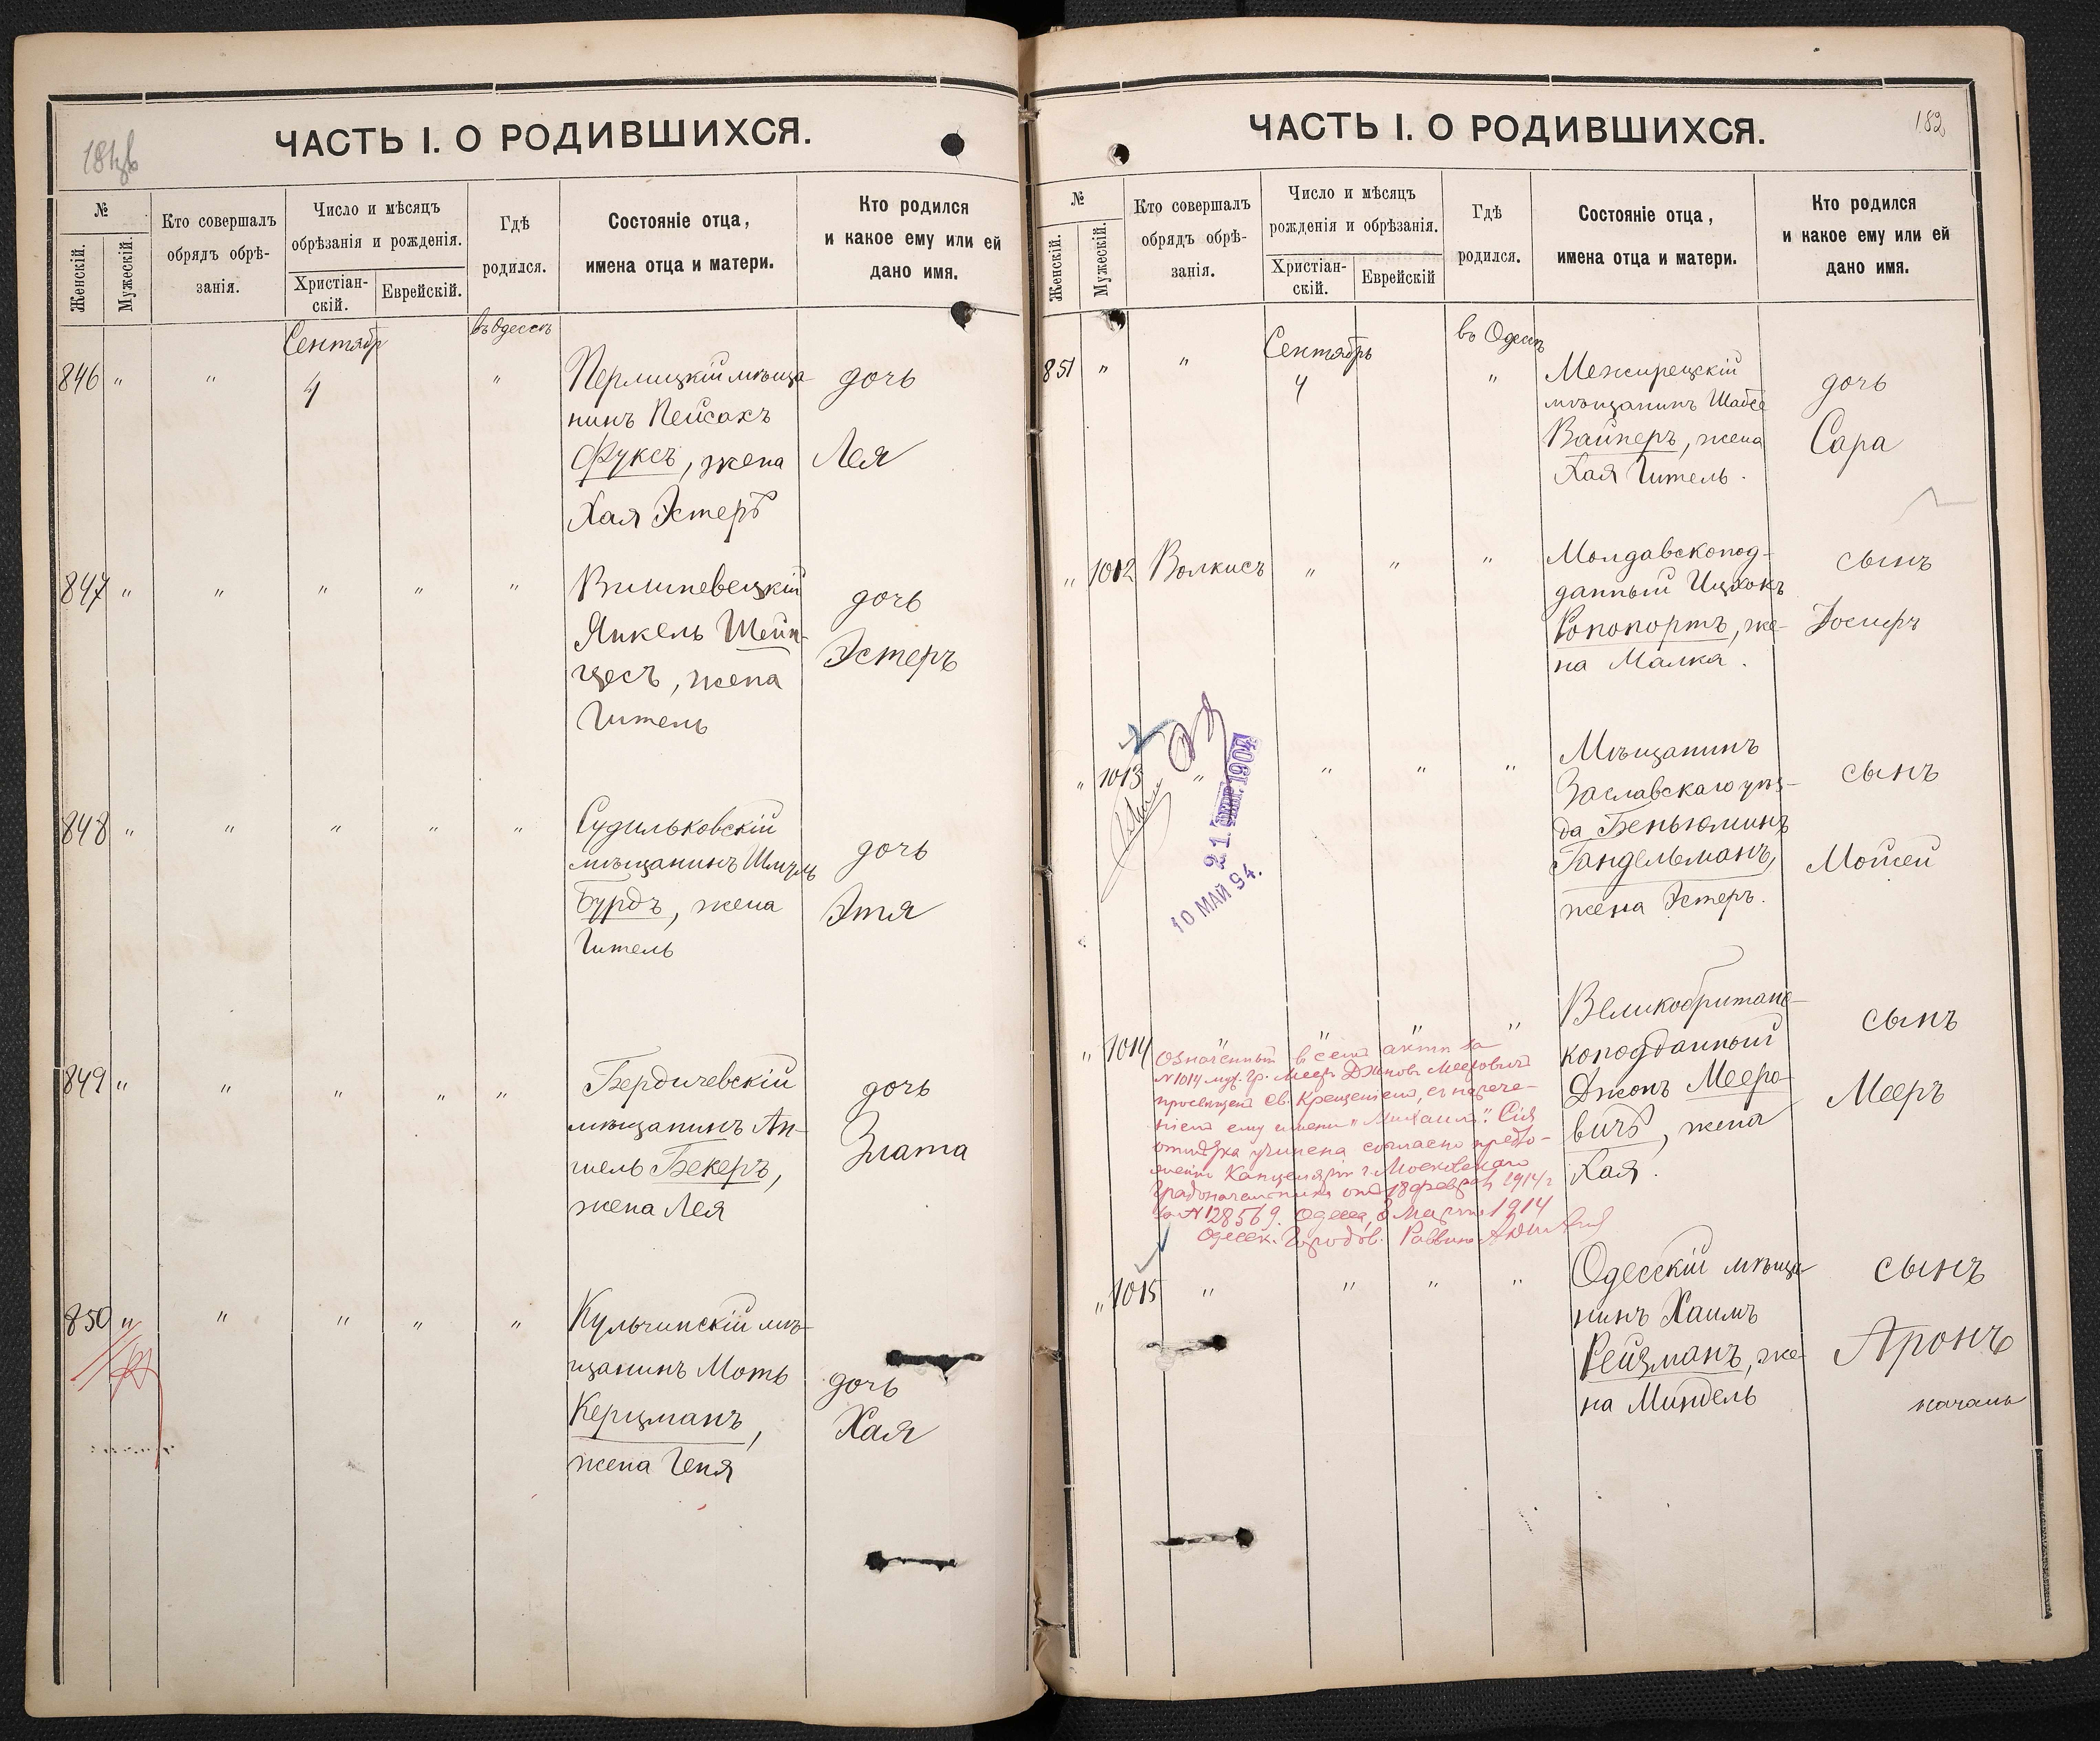 ЧАСТЬ I. О РОДИВШИХСЯ.
№
Женскій.
Мужескій.
Кто совершалъ
обрядъ обрѣ-
занія.
Число и мѣсяцъ
обрѣзанія и рожденія.
Христіан-
скій.
Еврейскій.
Гдѣ
родился.
Состояніе отца,
имена отца и матери.
Кто родился
и какое ему или ей
дано имя.
Сентябр
въ Одессѣ
846 " " 4 "
Перлицкій мѣща
нинъ Пейсахъ
Фуксъ, жена
Хая Эстеръ
дочь
Лея
847 " " " " "
Вишневецкій
Янкель Шейн-
цесъ, жена
Гитель
дочь
Эстеръ
848 " " " " "
Судильковскій
мѣщанинъ
Бурдъ, жена
Гитель
дочь
Этя
849 " " " " "
Бердичевскій
мѣщанинъ Ан-
шель Бекеръ,
жена Лея
дочь
Злата
850 " " " " "
Кульчинскій мѣ-
щанинъ Моть
Керцманъ,
жена Геня
дочь
Хая
ЧАСТЬ I. О РОДИВШИХСЯ.
182
№
Женскій.
Мужескій.
Кто совершалъ
обрядъ обрѣ-
занія.
Число и мѣсяцъ
рожденія и обрѣзанія.
Христіан-
скій.
Еврейскій
Гдѣ
родился.
Состояніе отца,
имена отца и матери.
Кто родился
и какое ему или ей
дано имя.
Сентябрь
въ Одессѣ
851 " " 4 "
Межирецкій
мѣщанинъ Шабсе
Вайнеръ, жена
Хая Гитель.
дочь
Сара
" 1012 Волкисъ " " "
Молдавскопод-
данный Ицхокъ
Ропопортъ, же-
на Малка.
сынъ
Іосифъ
" 1013 " " " "
21 1904
10 МАЙ 94.
Мѣщанинъ
Заславскаго уѣз-
да Беньюминъ
Гандельманъ,
жена Эстеръ.
сынъ
Мойсей
" 1014 " " " "
Великобритан-
скоподданный
Джонъ Мееро-
вичъ, жена
Хая.
сынъ
Мееръ
Означенный въ семъ актѣ за
№ 1014 муж. гр. Мееръ Джоновъ Мееровичъ
просвѣщенъ Св. Крещеніемъ, съ нарече-
ніемъ ему имени "Михаилъ". Сія
отмѣтка учинена согласно предло-
женію Канцеляріи г. Московскаго
Градоначальника отъ 18 февраля 1914 г.
за № 128569. Одесса, 8 Марта 1914
Одесск. Городов. Раввинъ
" 1015 " " " "
Одесскій мѣща
нинъ Хаимъ
Рейзманъ, же-
на Миндель
сынъ
Аронъ